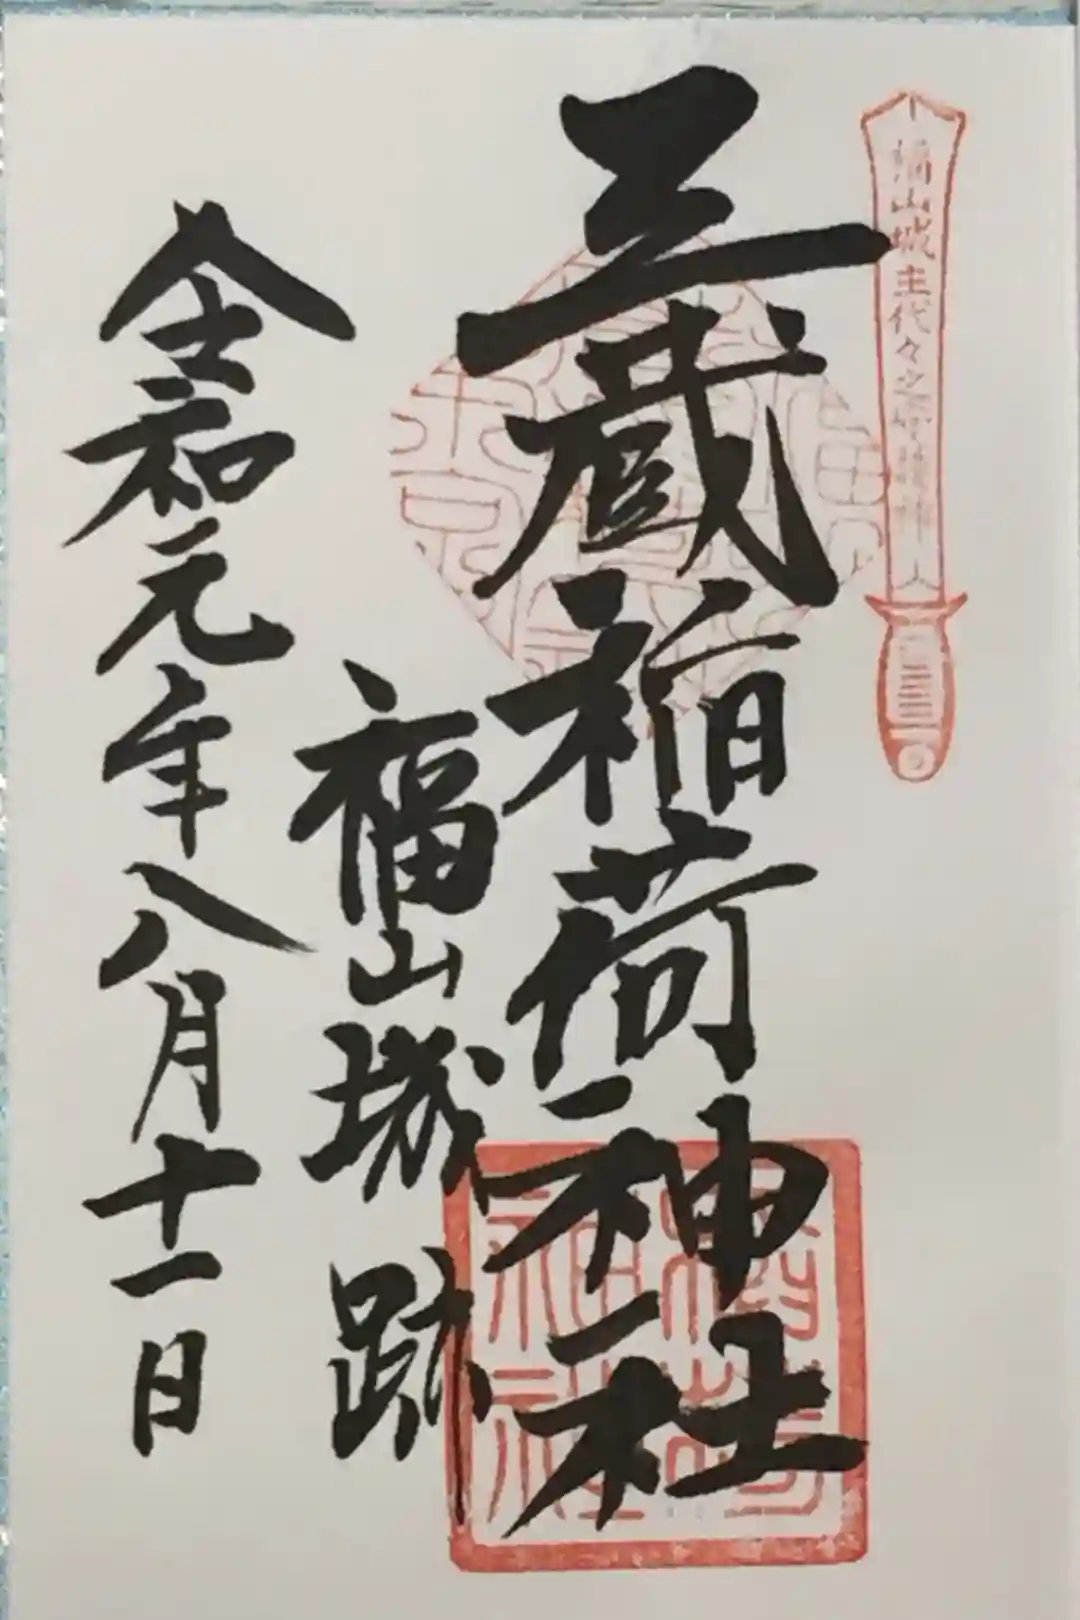 福山城主代々之守護神
三蔵稲荷神社
稲荷
神社
福山城跡
令和元年八月十一日